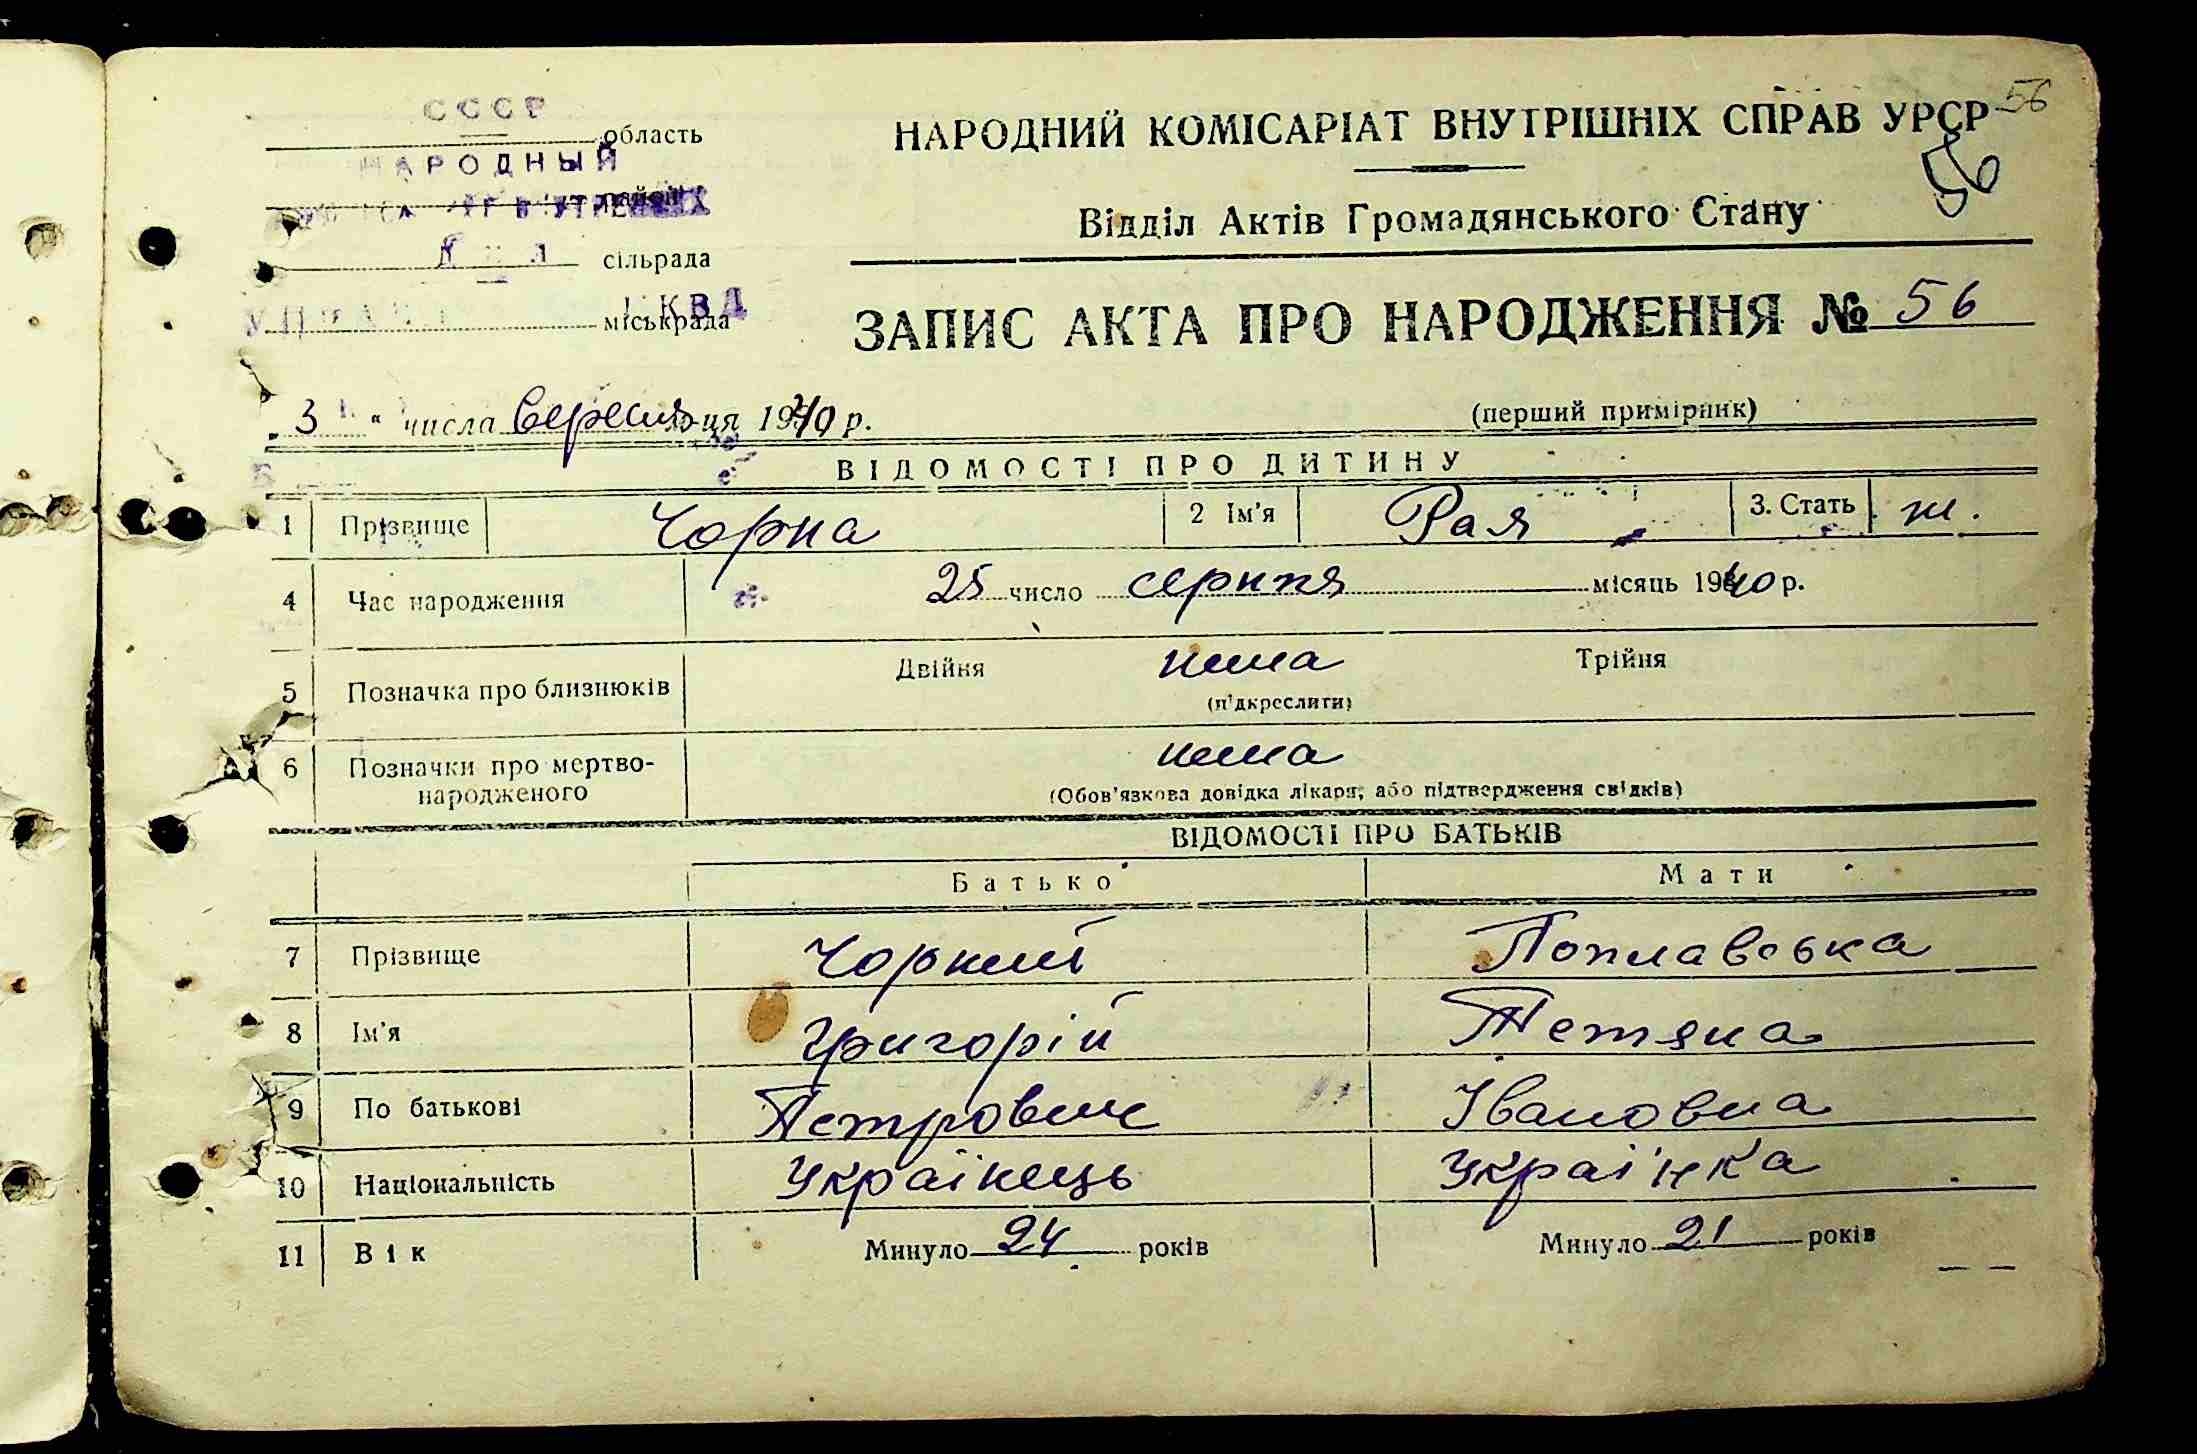 СССР
область
НАРОДНЫЙ
район
сільрада
міськрада
НКВД
56
НАРОДНИЙ КОМІСАРІАТ ВНУТРІШНІХ СПРАВ УРСР
56
Відділ Актів Громадянського Стану
ЗАПИС АКТА ПРО НАРОДЖЕННЯ № 56
„ 3 “ числа вересня м-ця 1940 р.
(перший примірник)
ВІДОМОСТІ ПРО ДИТИНУ
1 Прізвище Чорна 2 Ім'я Рая 3. Стать ж.
4 Час народження 25 число серпня місяць 1940 р.
5 Позначка про близнюків Двійня нема Трійня
(підкреслити)
6 Позначки про мертво-народженого нема
(Обов'язкова довідка лікаря, або підтвердження свідків)
ВІДОМОСТІ ПРО БАТЬКІВ
Батько Мати
7 Прізвище Чорний Поплавська
8 Ім'я Григорій Тетяна
9 По батькові Петрович Івановна
10 Національність Українець Українка
11 Вік Минуло 24 років Минуло 21 років